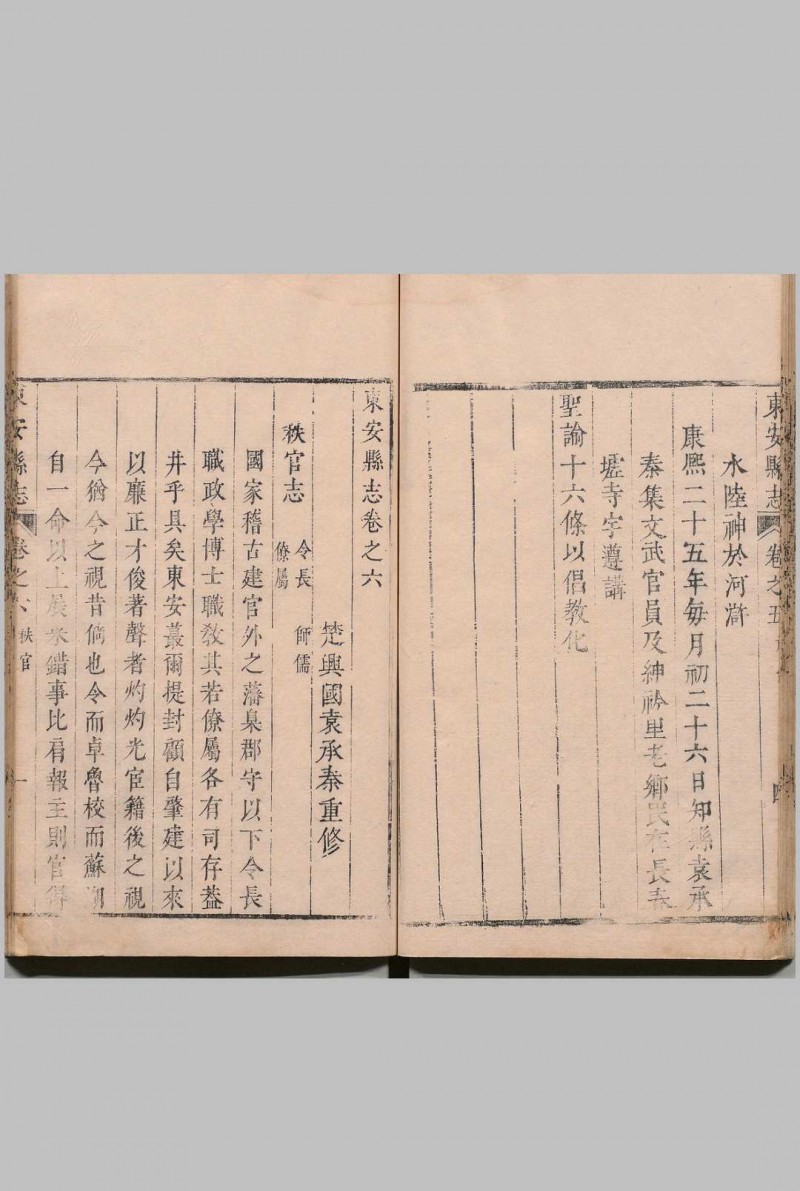 東安縣志 卷之五 四
水陸神於河滸
康熙二十五年每月初二十六日知縣袁承
泰集文武官員及紳衿里老鄉民在長春
壥寺宇遵講
聖諭十六條以倡教化
東安縣志卷之六
楚興國袁承泰重修
秩官志 令長 師儒
僚屬
國家稽古建官外之藩臬郡守以下令長
職政學博士職教其若僚屬各有司存葢
井乎具矣東安蕞爾提封顧自肇建以來
以廉正才俊著聲者灼灼光宦籍後之視
今猶今之視昔倘也令而卓魯校而蘇湖
自一命以上展采錯事比肩報主則官得
東安縣志 卷之六 秩官 一